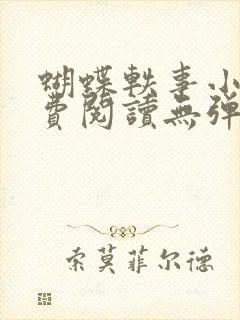 蝴蝶軼事小
費閱讀無彈
索莫菲尔德